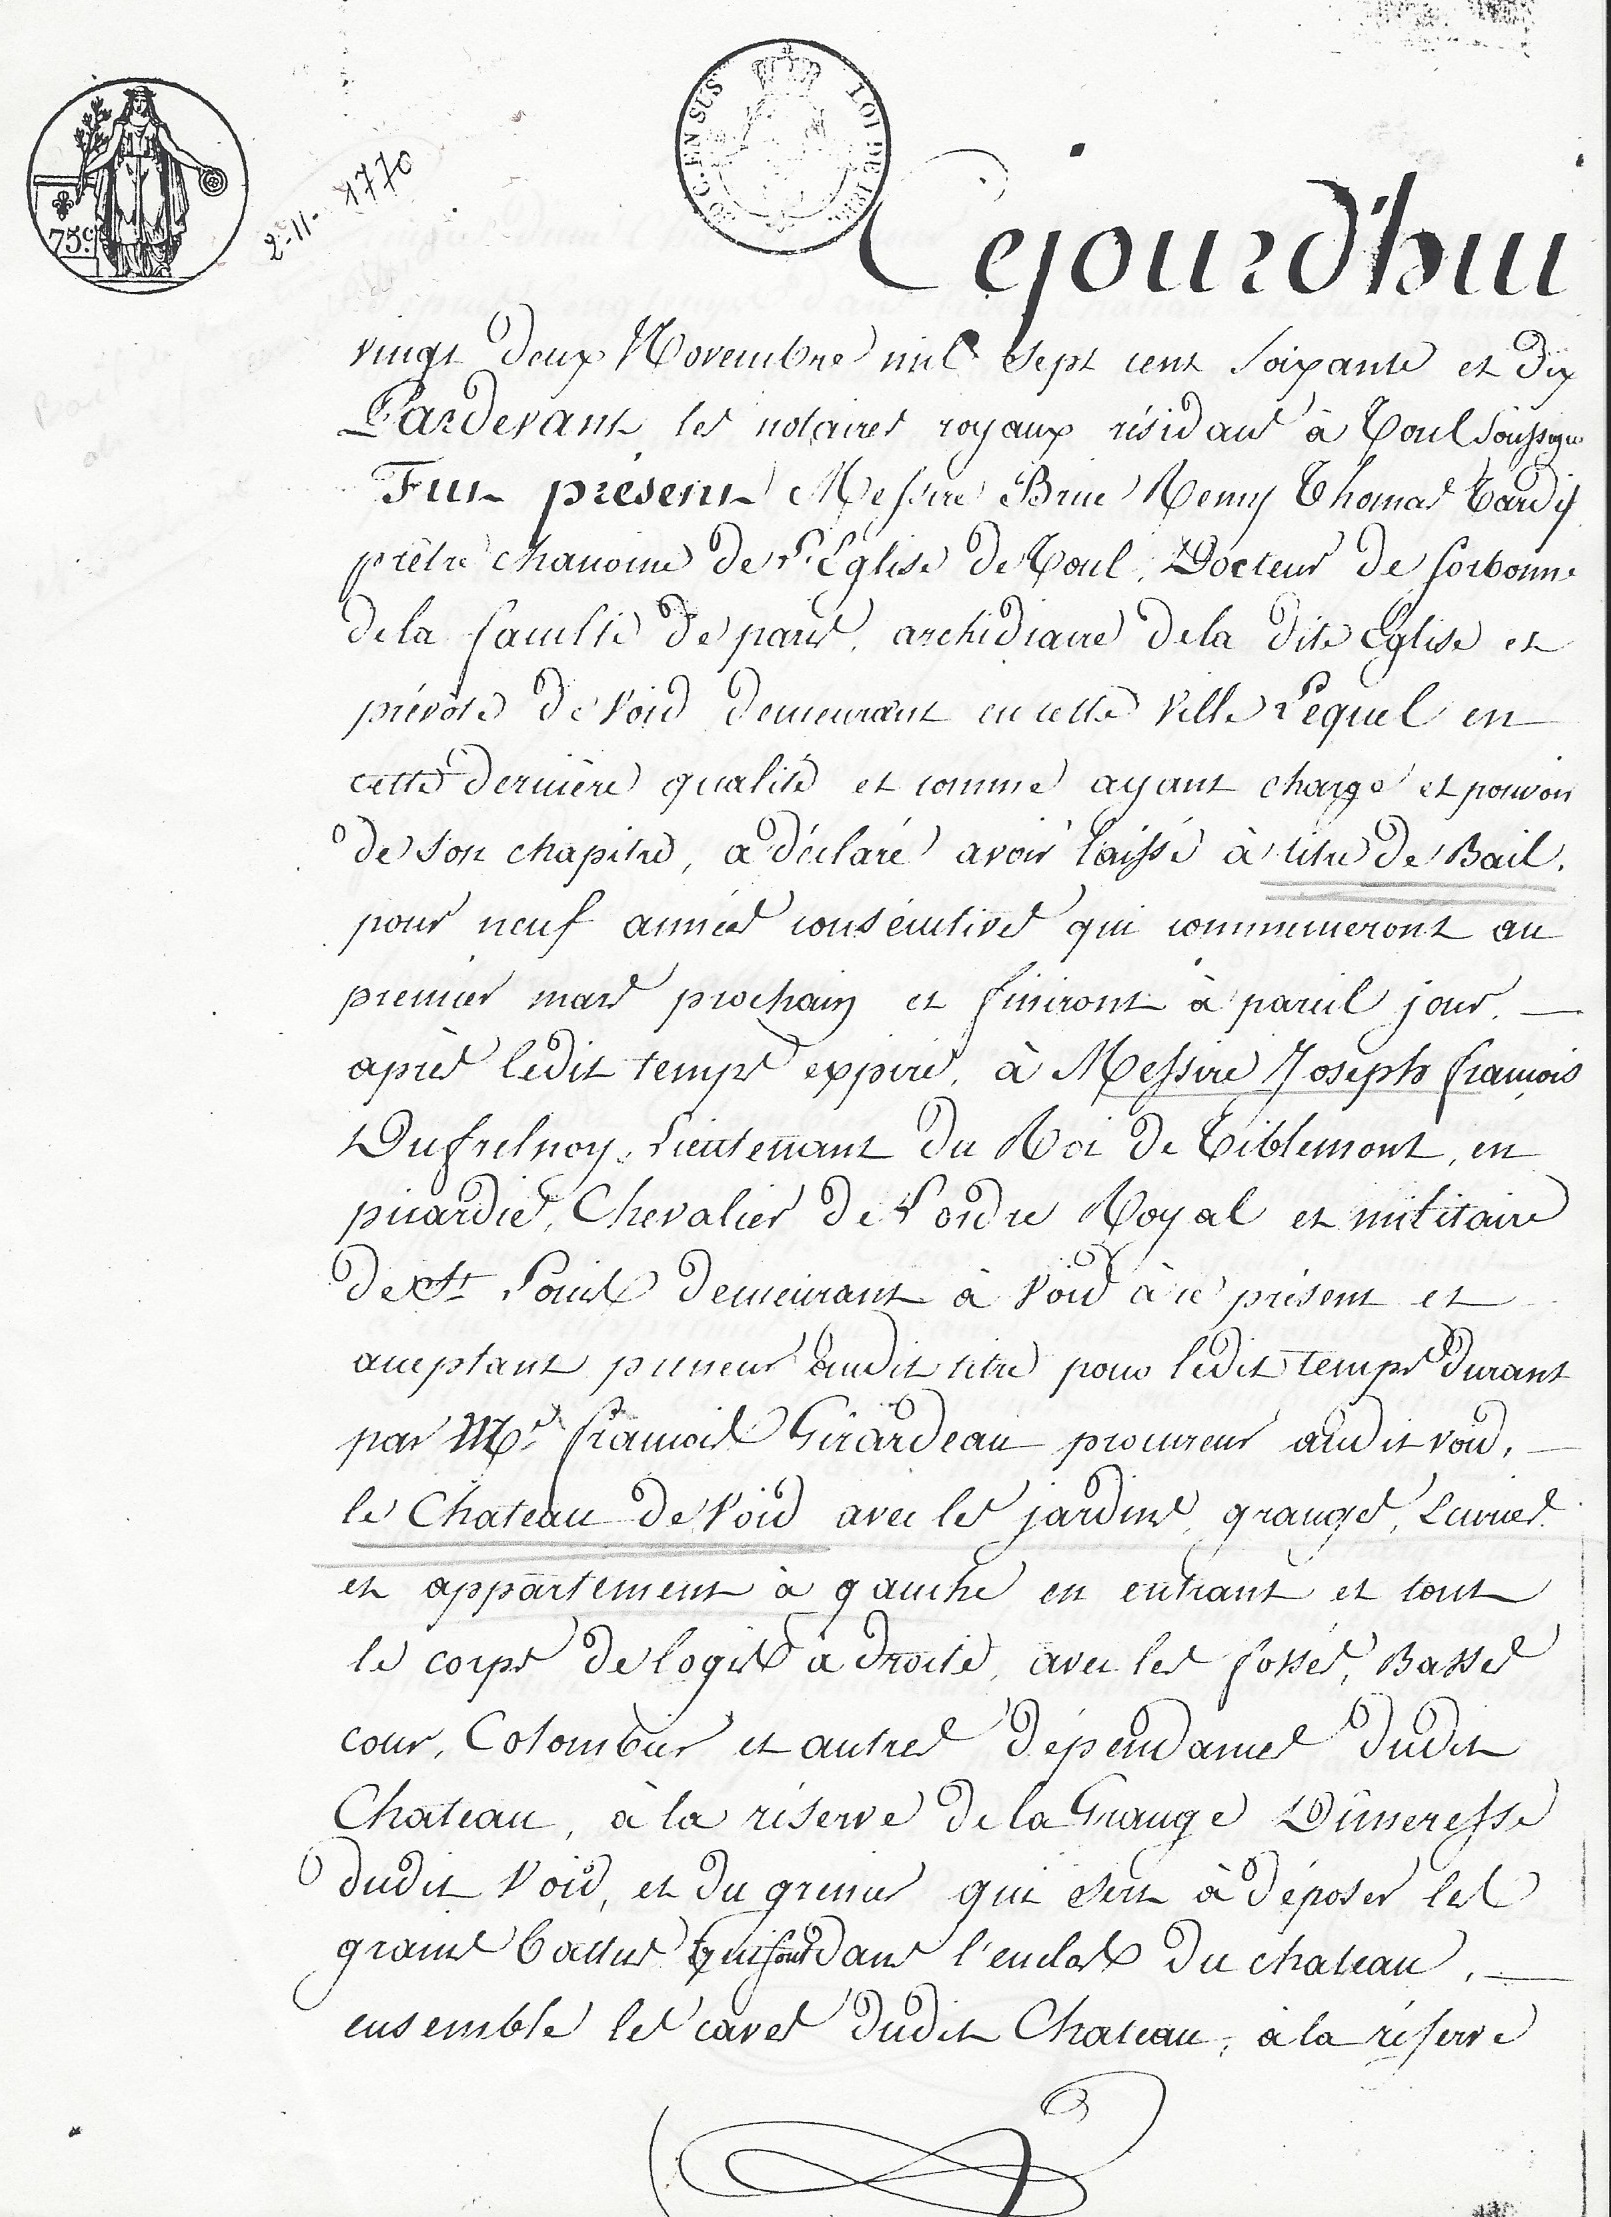 75c
2-11-1770
50 C. EN SUS
LOI DE 18
Cejourd'hui
vingt deux Novembre mil sept cent soixante et dix
Pardevant les notaires royaux résidans à Toul soussignés
Fut présent Messire Brice Remy Thomas Tardif
prêtre chanoine de l'Eglise de Toul, Docteur de sorbonne
de la faculté de paris, archidiacre de la dite Eglise et
prévôté de Void demeurant en cette Ville Lequel en
cette dernière qualité et comme ayant charge et pouvoir
de son chapitre, a déclaré avoir laissé à titre de Bail.
pour neuf années consécutives qui commenceront au
premier mars prochain et finiront à pareil jour.
après ledit temps expiré, à Messire Joseph françois
Dufresnoy, Lieutenant du Roi de Tiblemont, en
picardie, Chevalier de l'ordre Royal et militaire
de St Louis demeurant à Void à ce présent et
acceptant preneur audit titre pour ledit temps durant
par Me françois Girardeau procureur audit void,
le Chateau de Void avec les jardins, granges, Ecuries
et appartement à gauche en entrant et tout
le corps de logis à droite, avec les fossés, Basses
cour, Colombier et autres dépendances dudit
Chateau, à la réserve de la Grange Dimeresse
dudit Void, et du grenier qui sert à déposer les
grains battus qui sont dans l'enclos du chateau,
ensemble les caves dudit Chateau, à la réserve